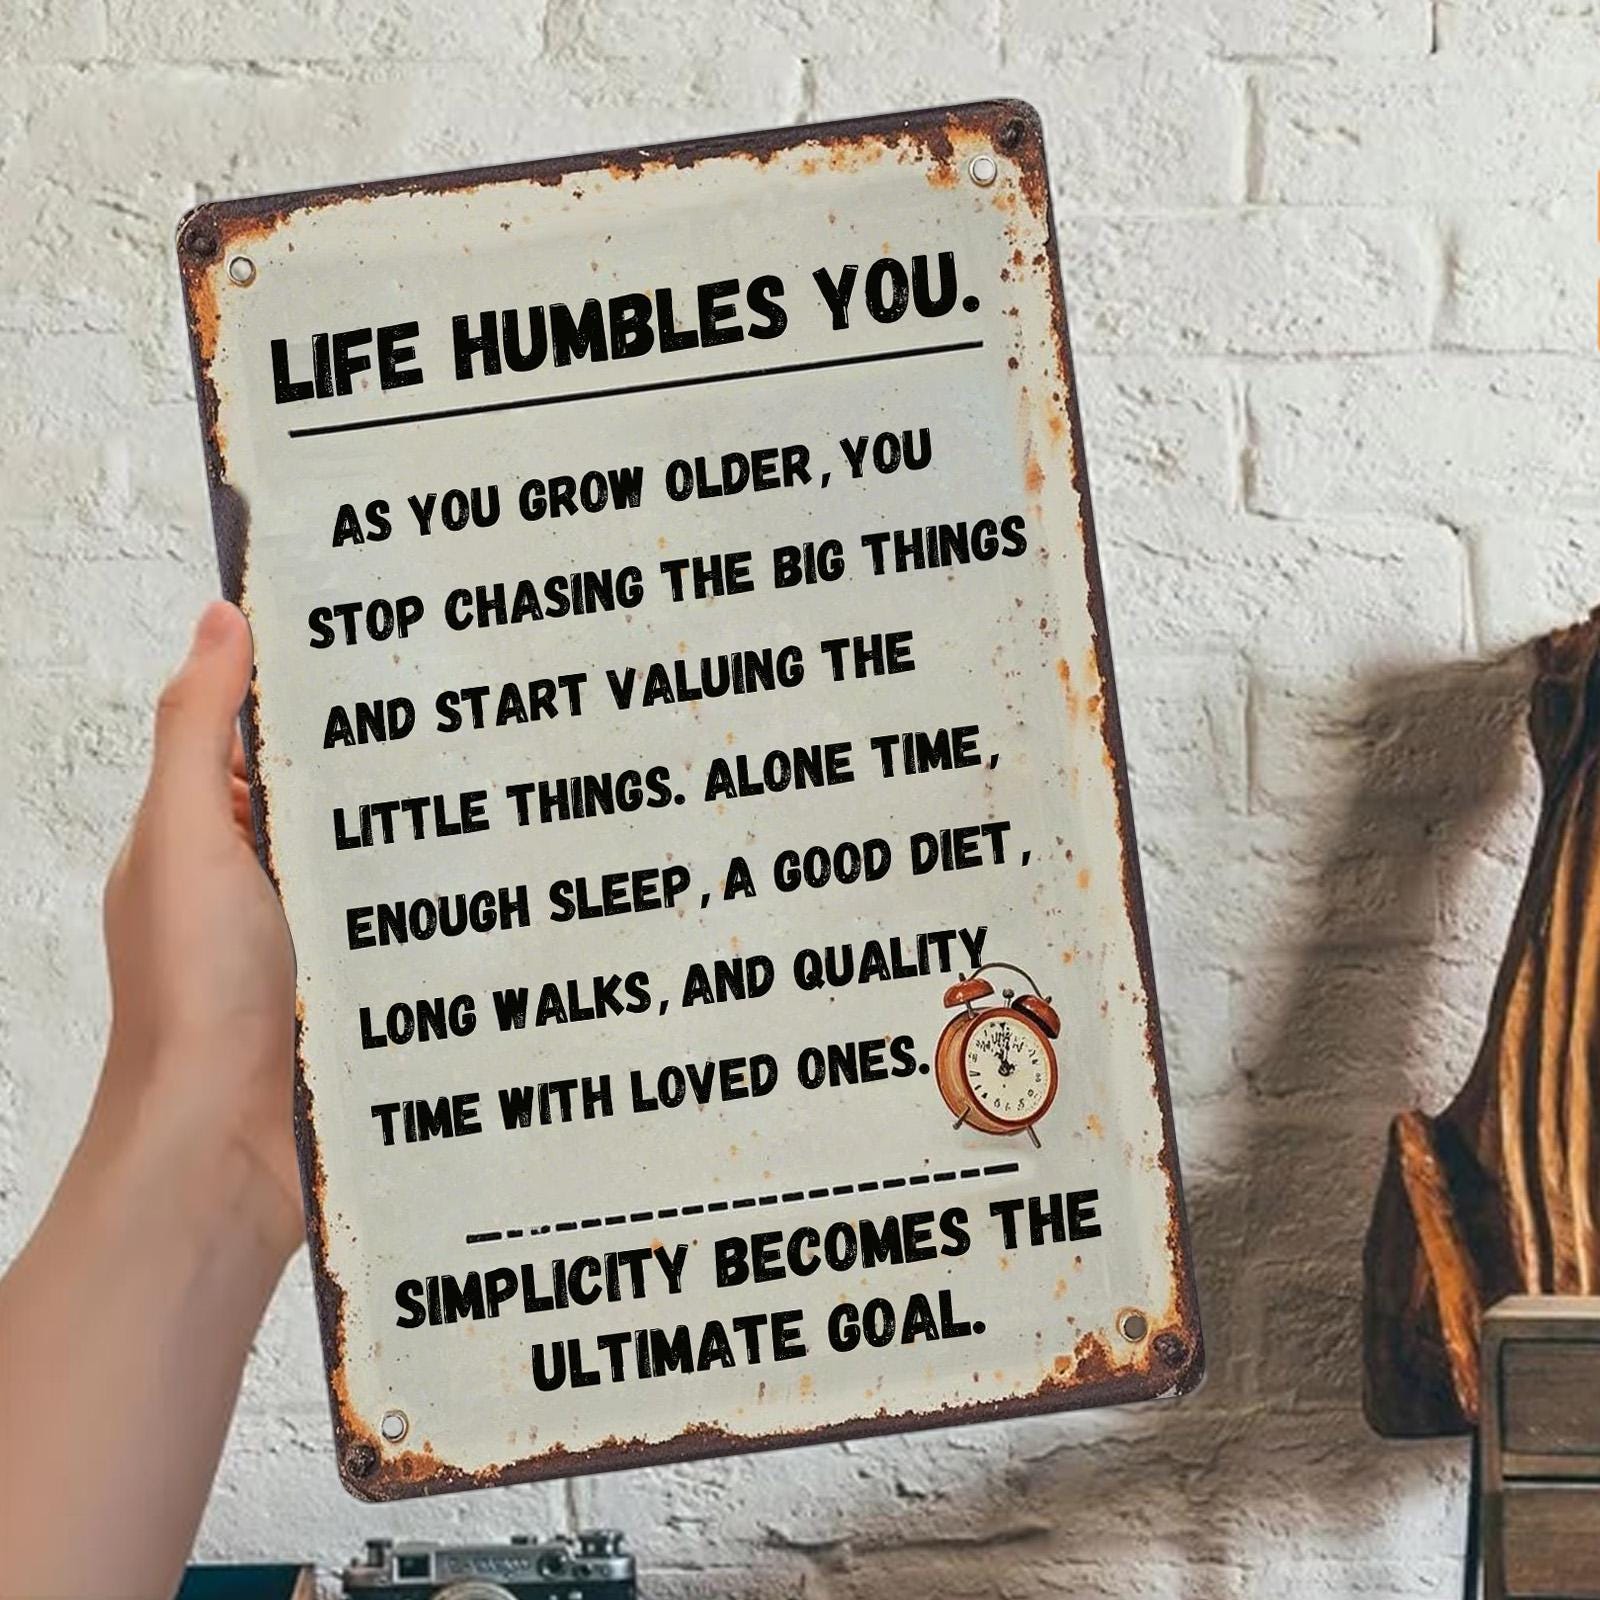 LIFE HUMBLES YOU.
AS YOU GROW OLDER, YOU
STOP CHASING THE BIG THINGS
AND START VALUING THE
LITTLE THINGS. ALONE TIME,
ENOUGH SLEEP, A GOOD DIET,
LONG WALKS, AND QUALITY
TIME WITH LOVED ONES.
SIMPLICITY BECOMES THE
ULTIMATE GOAL.